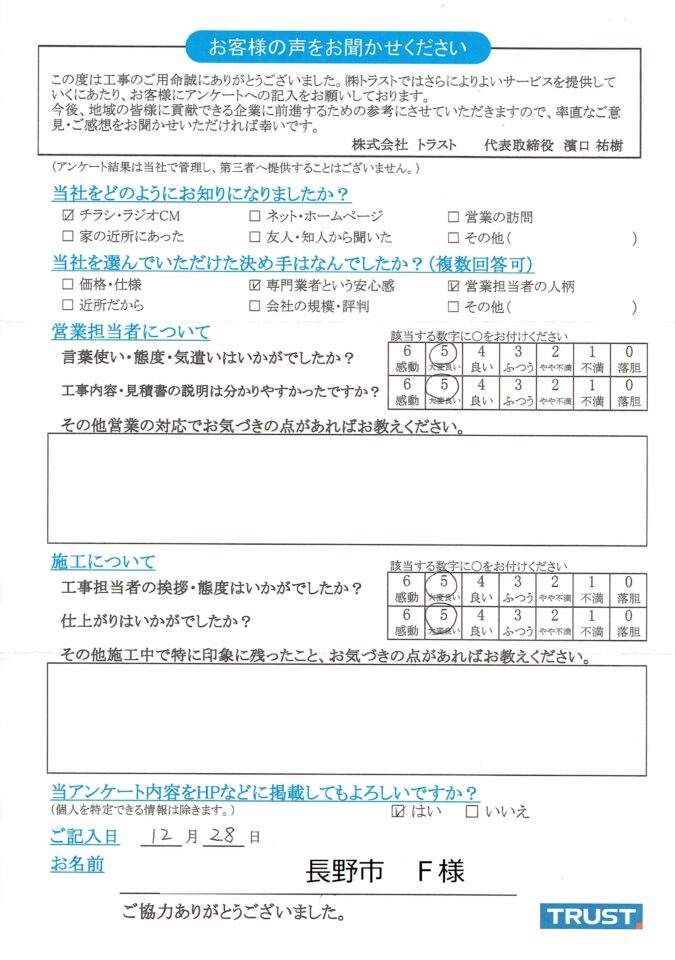 お客様の声をお聞かせください
この度は工事のご用命誠にありがとうございました。㈱トラストではさらによりよいサービスを提供して
いくにあたり、お客様にアンケートへの記入をお願いしております。
今後、地域の皆様に貢献できる企業に前進するための参考にさせていただきますので、率直なご意
見・ご感想をお聞かせいただければ幸いです。
株式会社 トラスト 代表取締役 濱口 祐樹
(アンケート結果は当社で管理し、第三者へ提供することはございません。)
当社をどのようにお知りになりましたか？
☑ チラシ・ラジオCM □ ネット・ホームページ □ 営業の訪問
□ 家の近所にあった □ 友人・知人から聞いた □ その他( )
当社を選んでいただけた決め手はなんでしたか？(複数回答可)
□ 価格・仕様 ☑ 専門業者という安心感 ☑ 営業担当者の人柄
□ 近所だから □ 会社の規模・評判 □ その他( )
営業担当者について
該当する数字に○をお付けください
言葉使い・態度・気遣いはいかがでしたか？
6 5 4 3 2 1 0
感動 大変良い 良い ふつう やや不満 不満 落胆
工事内容・見積書の説明は分かりやすかったですか？
6 5 4 3 2 1 0
感動 大変良い 良い ふつう やや不満 不満 落胆
その他営業の対応でお気づきの点があればお教えください。
施工について
該当する数字に○をお付けください
工事担当者の挨拶・態度はいかがでしたか？
6 5 4 3 2 1 0
感動 大変良い 良い ふつう やや不満 不満 落胆
仕上がりはいかがでしたか？
6 5 4 3 2 1 0
感動 大変良い 良い ふつう やや不満 不満 落胆
その他施工中で特に印象に残ったこと、お気づきの点があればお教えください。
当アンケート内容をHPなどに掲載してもよろしいですか？
(個人を特定できる情報は除きます。) ☑ はい □ いいえ
ご記入日 12 月 28 日
お名前 長野市 F様
ご協力ありがとうございました。
TRUST.